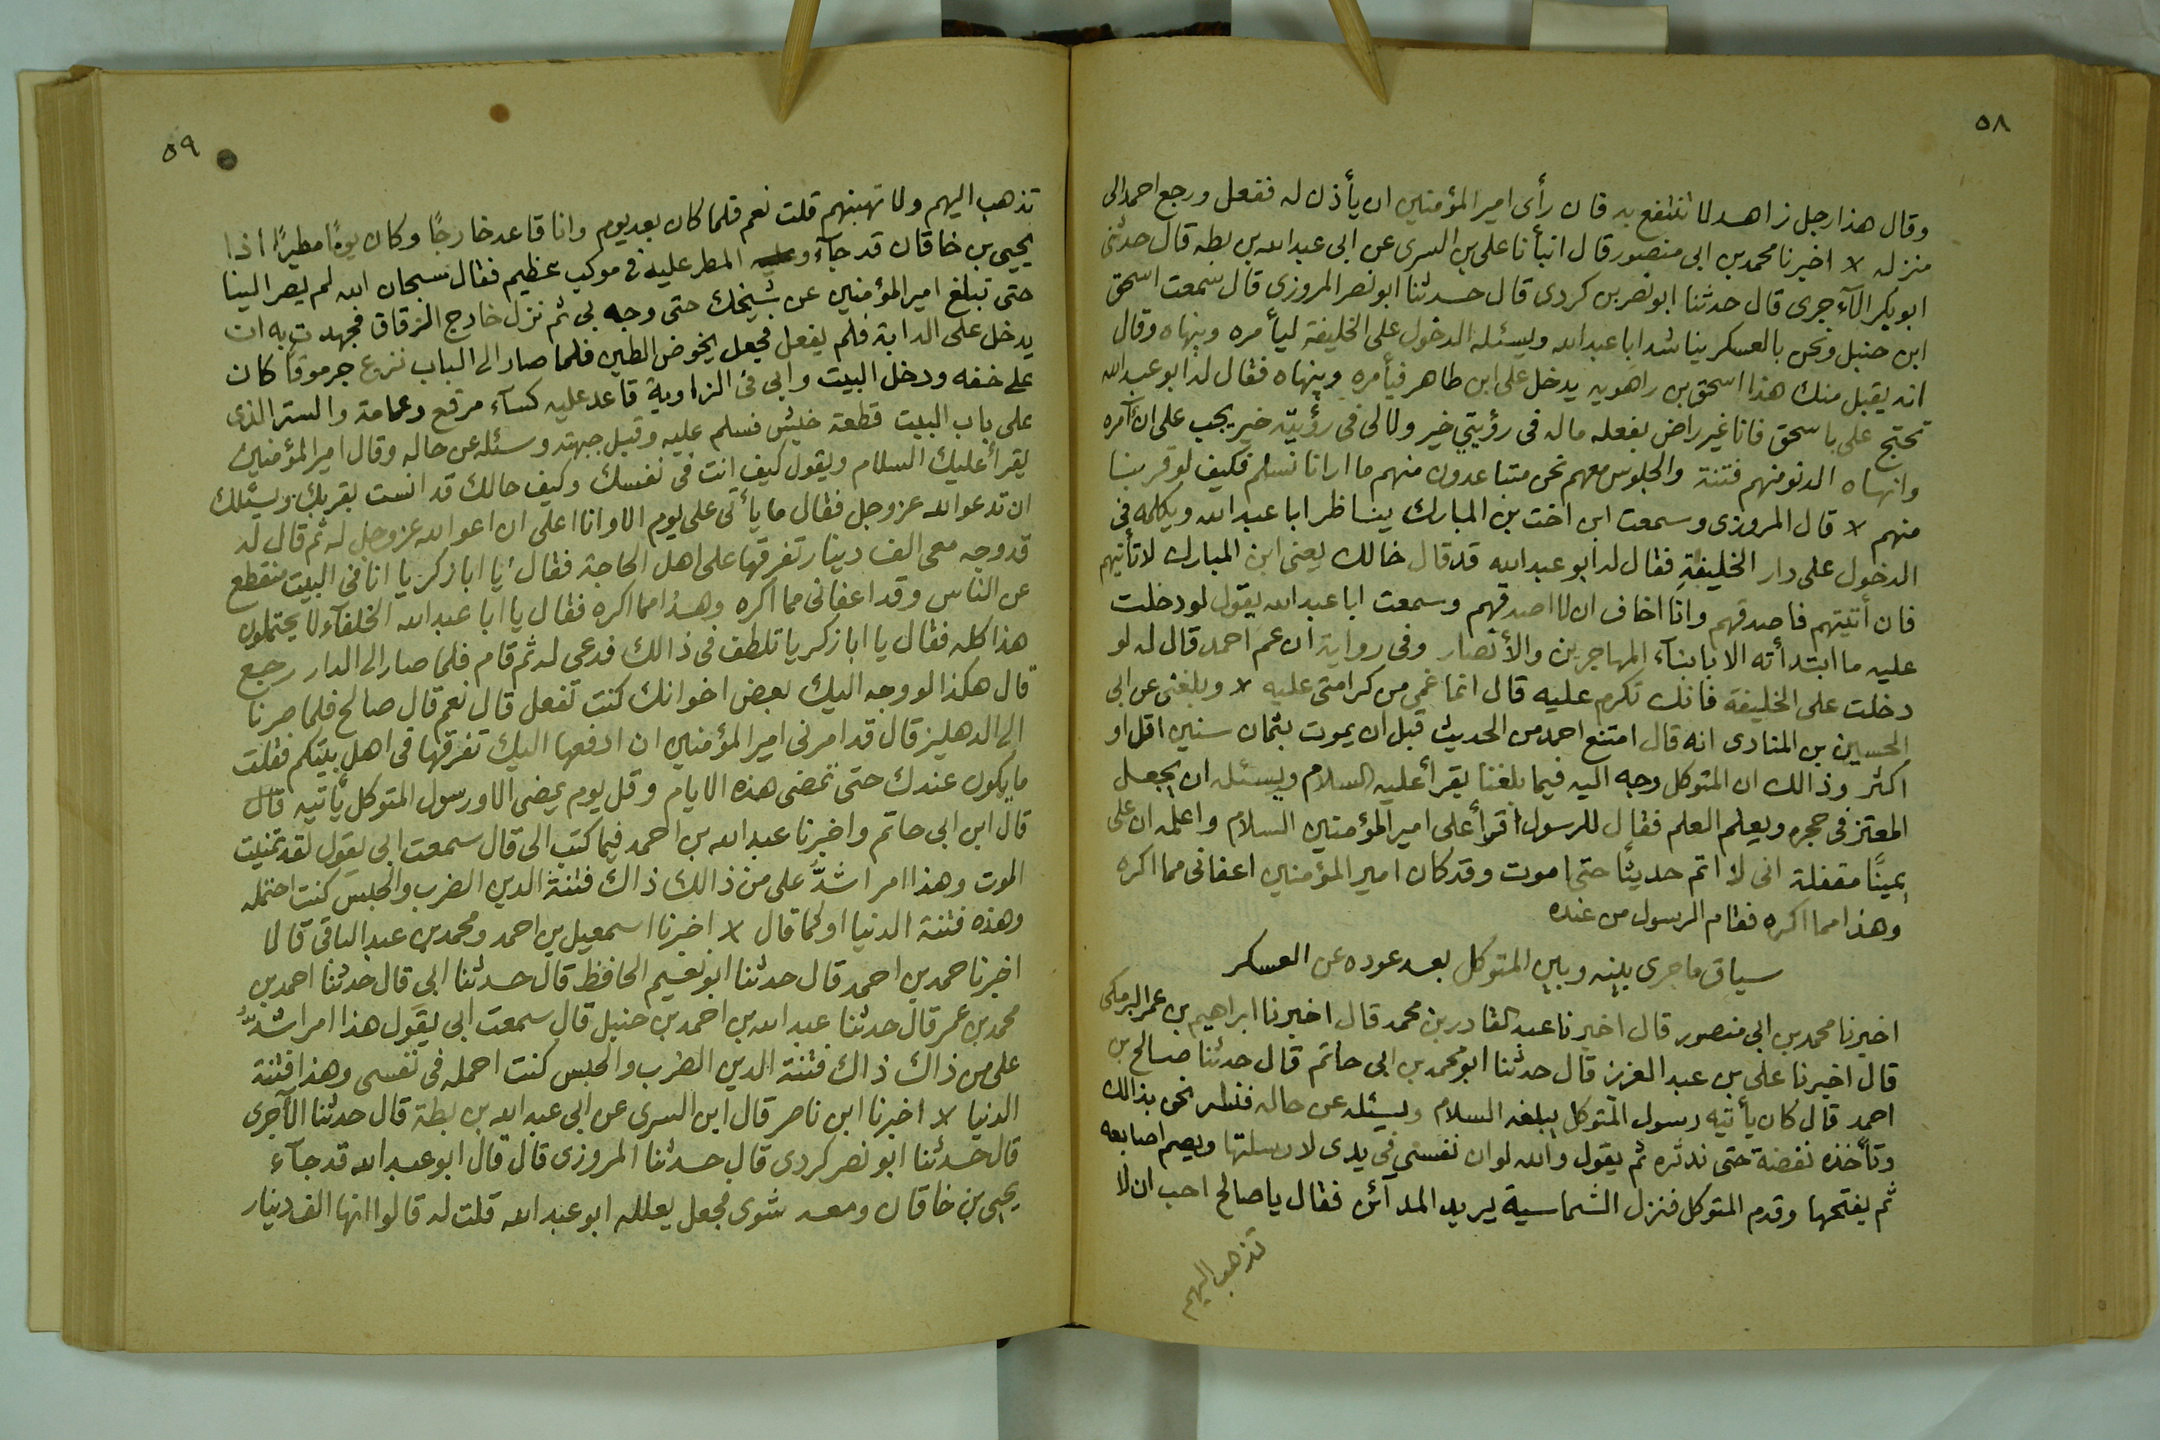 ٥٨
وقال هذا رجل زاهد لا ننتفع به فان رأى امير المؤمنين ان يأذن له ففعل ورجع احمد الى
منزله لا اخبرنا محمد بن ابى منصور قال انبأنا على بن السرى عن ابى عبد الله بن بطه قال حدثنى
ابو بكر الآجرى قال حدثنا ابو نصر بن كردى قال حدثنا ابو نصر المروزى قال سمعت اسحق
ابن حنبل ونحن بالعسكر يناشد ابا عبد الله ويسئله الدخول على الخليفة ليأمره وينهاه وقال
انه يقبل منك هذا اسحق بن راهويه يدخل على ابن طاهر فيأمره وينهاه فقال له ابو عبد الله
تحتج على باسحق فانا غير راض بفعله ماله فى رؤيتى خير ولا لى فى رؤيته خير يجب على ان آمره
وانهاه الدنو منهم فتنة والجلوس معهم نحن متباعدون منهم ما ارانا نسلم فكيف لو قربنا
منهم لا قال المروزى وسمعت ابن اخت بن المبارك يناظر ابا عبد الله ويكلمه فى
الدخول على دار الخليفة فقال له ابو عبد الله قد قال خالك يعنى ابن المبارك لا تأتيهم
فان أتيتهم فاصدقهم وانا اخاف ان لا اصدقهم وسمعت ابا عبد الله يقول لو دخلت
عليه ما ابتدأته الا بابناء المهاجرين والأنصار وفى رواية ان عم احمد قال له لو
دخلت على الخليفة فانك تكرم عليه قال انما غمي من كرامتى عليه لا وبلغنى عن ابى
الحسين بن المنادى انه قال امتنع احمد من الحديث قبل ان يموت بثمان سنين اقل او
اكثر وذالك ان المتوكل وجه اليه فيما بلغنا يقرأ عليه السلام ويسئله ان يجعل
المعتز فى حجره ويعلم العلم فقال للرسول اقرأ على امير المؤمنين السلام واعلمه ان على
يمينًا مقفلة انى لا اتم حديثًا حتى اموت وقد كان امير المؤمنين اعفانى مما اكره
وهذا مما اكره فقام الرسول من عنده
سياق ما جرى بينه وبين المتوكل بعد عوده عن العسكر
اخبرنا محمد بن ابى منصور قال اخبرنا عبد القادر بن محمد قال اخبرنا ابراهيم بن عمر البرمكى
قال اخبرنا على بن عبد العزيز قال حدثنا ابو محمد بن ابى حاتم قال حدثنا صالح بن
احمد قال كان يأتيه رسول المتوكل يبلغه السلام ويسئله عن حاله فنسر نحن بذالك
وتأخذه نفضة حتى ندثره ثم يقول والله لو ان نفسى فى يدى لارسلتها ويضم اصابعه
ثم يفتحها وقدم المتوكل فنزل الشماسية يريد المدآئن فقال يا صالح احب ان لا
تذهب اليهم
٥٩
تذهب اليهم ولا تهبنهم قلت نعم فلما كان بعد يوم وانا قاعد خارجًا وكان يومًا مطيرًا اذا
يحيى بن خاقان قد جآء وعليه المطر عليه فى موكب عظيم فقال سبحان الله لم يصر الينا
حتى تبلغ امير المؤمنين عن شيخك حتى وجه بى ثم نزل خارج الزقاق فجهدت به ان
يدخل على الدابة فلم يفعل فجعل يخوض الطين فلما صار الى الباب نزع جرموقًا كان
على خفه ودخل البيت وابى فى الزاوية قاعد عليه كسآء مرقع وعمامة والستر الذى
على باب البيت قطعة خيش فسلم عليه وقبل جبهته وسئله عن حاله وقال امير المؤمنين
يقرأ عليك السلام ويقول كيف انت فى نفسك وكيف حالك قد انست بقربك ويسئلك
ان تدعو الله عز وجل فقال ما يأتى على يوم الا وانا اعلى ان اعو الله عز وجل له ثم قال له
قد وجه معى الف دينار تفرقها على اهل الحاجة فقال يا ابا زكريا انا فى البيت منقطع
عن الناس وقد اعفانى مما اكره وهذا مما اكره فقال يا ابا عبد الله الخلفآء لا يحتملون
هذا كله فقال يا ابا زكريا تلطف فى ذالك فدعى له ثم قام فلما صار الى الدار رجع
قال هكذا لو وجه اليك بعض اخوانك كنت تفعل قال نعم قال صالح فلما صرنا
الى الدهليز قال قد امرنى امير المؤمنين ان ادفعها اليك تفرقها فى اهل بيتكم فقلت
ما يكون عندك حتى تمضى هذه الايام وقل يوم يمضى الا ورسول المتوكل يأتيه قال
قال ابن ابى حاتم واخبرنا عبد الله بن احمد فيما كتب الى قال سمعت ابى يقول لقد تمنيت
الموت وهذا امر اشدّ على من ذالك ذاك فتنة الدين الضرب والحبس كنت احتمله
وهذه فتنة الدنيا او كما قال لا اخبرنا اسمعيل بن احمد ومحمد بن عبد الباقى قالا
اخبرنا حمد بن احمد قال حدثنا ابو نعيم الحافظ قال حدثنا ابى قال حدثنا احمد بن
محمد بن عمر قال حدثنا عبد الله بن احمد بن حنبل قال سمعت ابى يقول هذا امر اشدُّ
على من ذاك ذاك فتنة الدين الضرب والحبس كنت احمله فى نفسى وهذا فتنة
الدنيا لا اخبرنا ابن ناصر قال ابن السرى عن ابى عبد الله بن بطة قال حدثنا الآجرى
قال حدثنا ابو نصر كردى قال حدثنا المروزى قال قال ابو عبد الله قد جآء
يحيى بن خاقان ومعه شوى فجعل يعلله ابو عبد الله قلت له قالوا انها الف دينار